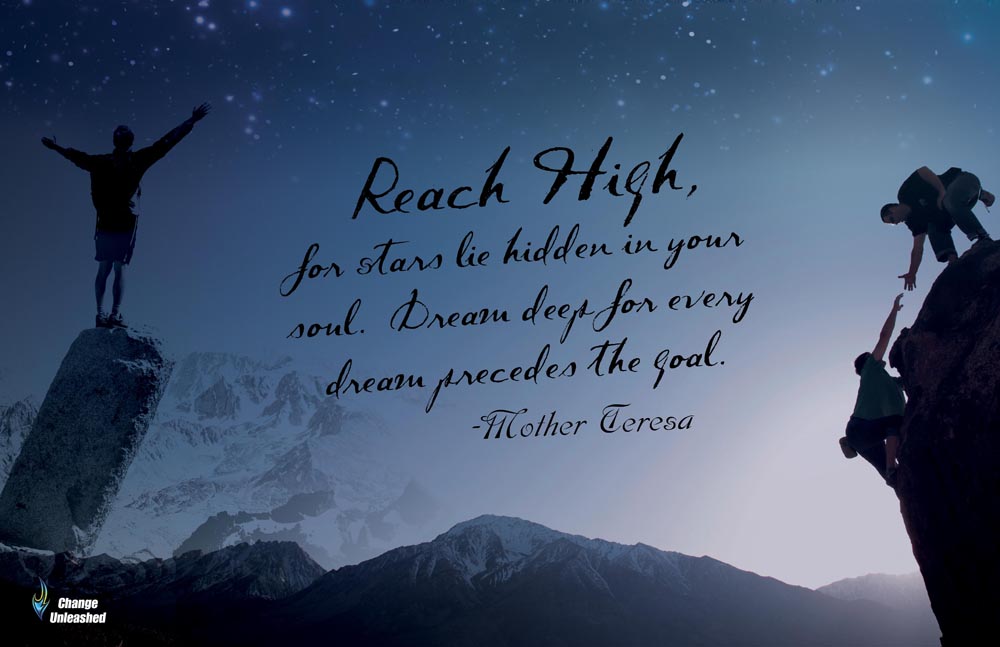 Reach High,
for stars lie hidden in your
soul. Dream deep for every
dream precedes the goal.
-Mother Teresa
Change
Unleashed